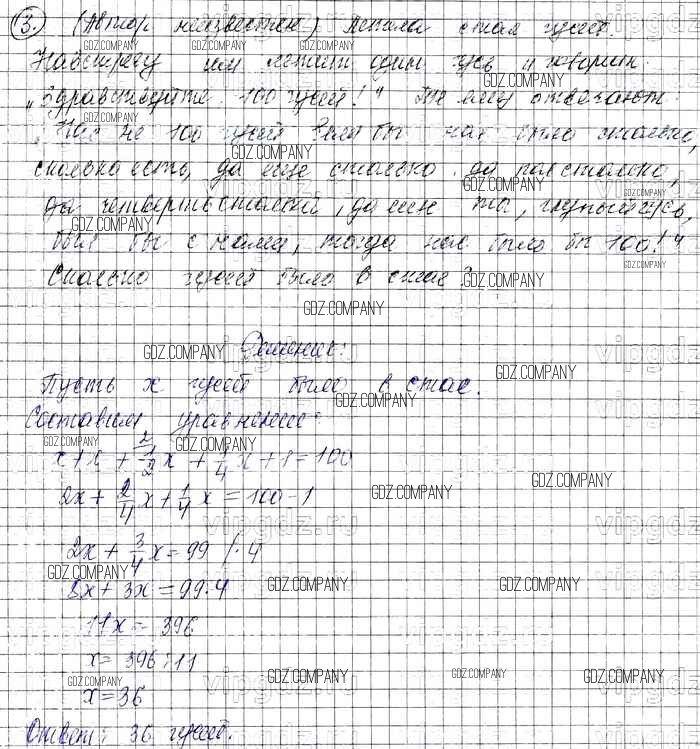 3. (Автор неизвестен) Летела стая гусей.
Навстречу им летит один гусь и говорит:
„Здравствуйте 100 гусей!" Те ему отвечают
„Нас не 100 гусей Если бы нас было столько,
сколько есть, да еще столько, да полстолько,
да четвертьстолька, да еще ты, глупый гусь,
был бы с нами, тогда нас было бы 100!"
Сколько гусей было в стае?
Решение:
Пусть x гусей было в стае.
Составим уравнение:
x + x + 1/2 x + 1/4 x + 1 = 100
2x + 2/4 x + 1/4 x = 100 - 1
2x + 3/4 x = 99 /·4
8x + 3x = 99·4
11x = 396
x = 396:11
x = 36
Ответ: 36 гусей.
GDZ.COMPANY
vipgdz.ru